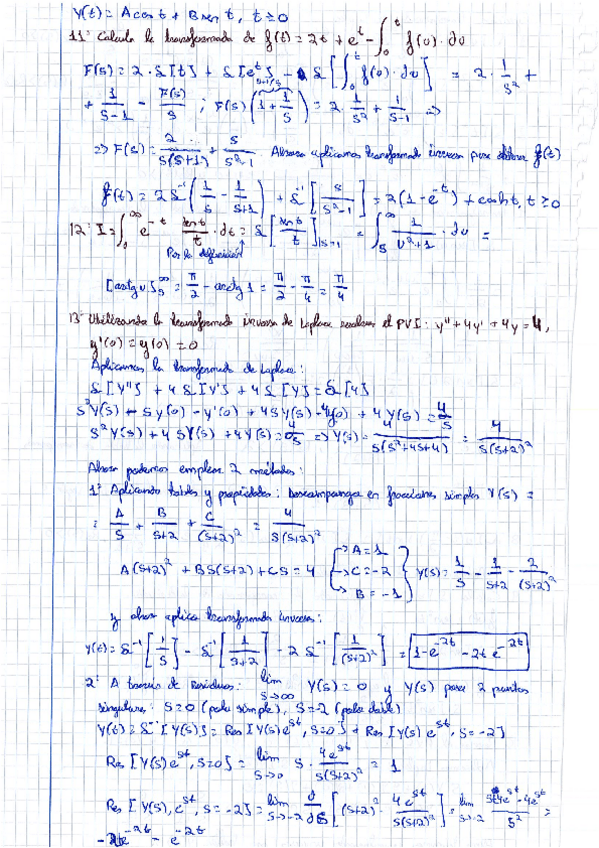 y(t) = A cos t + B sen t, t ≥ 0
11º Calcula la transformada de f(t) = 2t + e^t - ∫_0^t f(u)·du
F(s) = 2·L[t] + L[e^t] - L[∫_0^t f(u)·du] = 2·1/s² +
+ 1/(s-1) - F(s)/s ; F(s)(1 + 1/s) = 2·1/s² + 1/(s-1) ⇒
⇒ F(s) = 2/(s(s+1)) + s/(s²-1) Ahora aplicamos transformada inversa para obtener f(t)
f(t) = 2L⁻¹(1/s - 1/(s+1)) + L⁻¹[s/(s²-1)] = 2(1-e^-t) + cosh t, t ≥ 0
12º I = ∫_0^∞ e^-t sen t/t · dt = L[sen t/t]|s=1 = ∫_s^∞ 1/(u²+1) · du =
Por la definición
[arctg u]_s^∞ = π/2 - arctg 1 = π/2 - π/4 = π/4
13º Utilizando la transformada inversa de Laplace resolver el PVI: y'' + 4y' + 4y = 4,
y'(0) = y(0) = 0
Aplicamos la transformada de Laplace:
L[Y''] + 4L[Y'] + 4L[Y] = L[4]
s²Y(s) - sy(0) - y'(0) + 4sY(s) - 4y(0) + 4Y(s) = 4/s
s²Y(s) + 4sY(s) + 4Y(s) = 4/s ⇒ Y(s) = 4/(s(s²+4s+4)) = 4/(s(s+2)²)
Ahora podemos emplear 2 métodos:
1º Aplicando tablas y propiedades: Descomponga en fracciones simples Y(s) =
= A/s + B/(s+2) + C/(s+2)² = 4/(s(s+2)²)
A(s+2)² + Bs(s+2) + Cs = 4 { → A = 1 → C = -2 → B = -1 } Y(s) = 1/s - 1/(s+2) - 2/(s+2)²
y ahora aplica transformada inversa:
y(t) = L⁻¹[1/s] - L⁻¹[1/(s+2)] - 2L⁻¹[1/(s+2)²] = 1 - e^-2t - 2t e^-2t
2º A través de Residuos: lim s→∞ Y(s) = 0 y Y(s) posee 2 puntos
singulares: s=0 (polo simple), s=-2 (polo doble)
Y(t) = L⁻¹[Y(s)] = Res[Y(s)e^st, s=0] + Res[Y(s)e^st, s=-2]
Res[Y(s)e^st, s=0] = lim s→0 s · 4e^st/(s(s+2)²) = 1
Res[Y(s), e^st, s=-2] = lim s→-2 d/ds [(s+2)² · 4e^st/(s(s+2)²)] = lim s→-2 (st4e^st - 4e^st)/s² =
- 2te^-2t - e^-2t